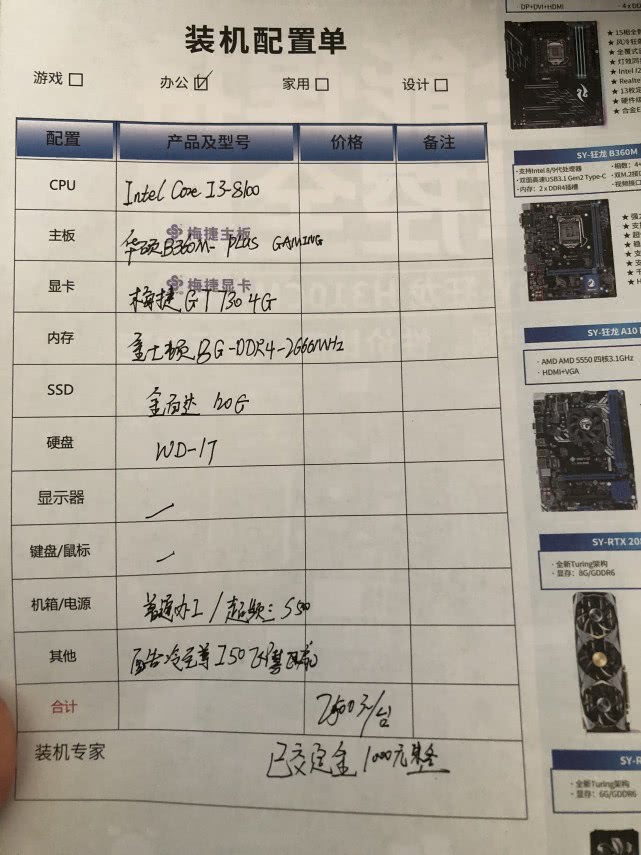 装机配置单
游戏
办公
家用
设计
配置 产品及型号 价格 备注
CPU Intel Core I3-8100
梅捷主板
主板 华硕B360M-PLUS GAMING
梅捷显卡
显卡 梅捷GT730 4G
内存 金士顿8G-DDR4-2666MHz
SSD 金百达 120G
硬盘 WD-1T
显示器
键盘/鼠标
机箱/电源 普通办工/超频三 S50
其他 冷至尊I50
合计 2500元/台
装机专家 已交定金1000元整
DP+DVI+HDMI
SY-狂龙 B360M
·支持Intel 8/9代处理器
·双面高速USB3.1 Gen2 Type-C
·内存：2 x DDR4插槽
SY-狂龙 A10
· AMD AMD 5550 四核3.1GHz
· HDMI+VGA
SY-RTX 20
· 全新Turing架构
· 显存：8G/GDDR6
SY-R
· 全新Turing架构
· 显存：6G/GDDR6